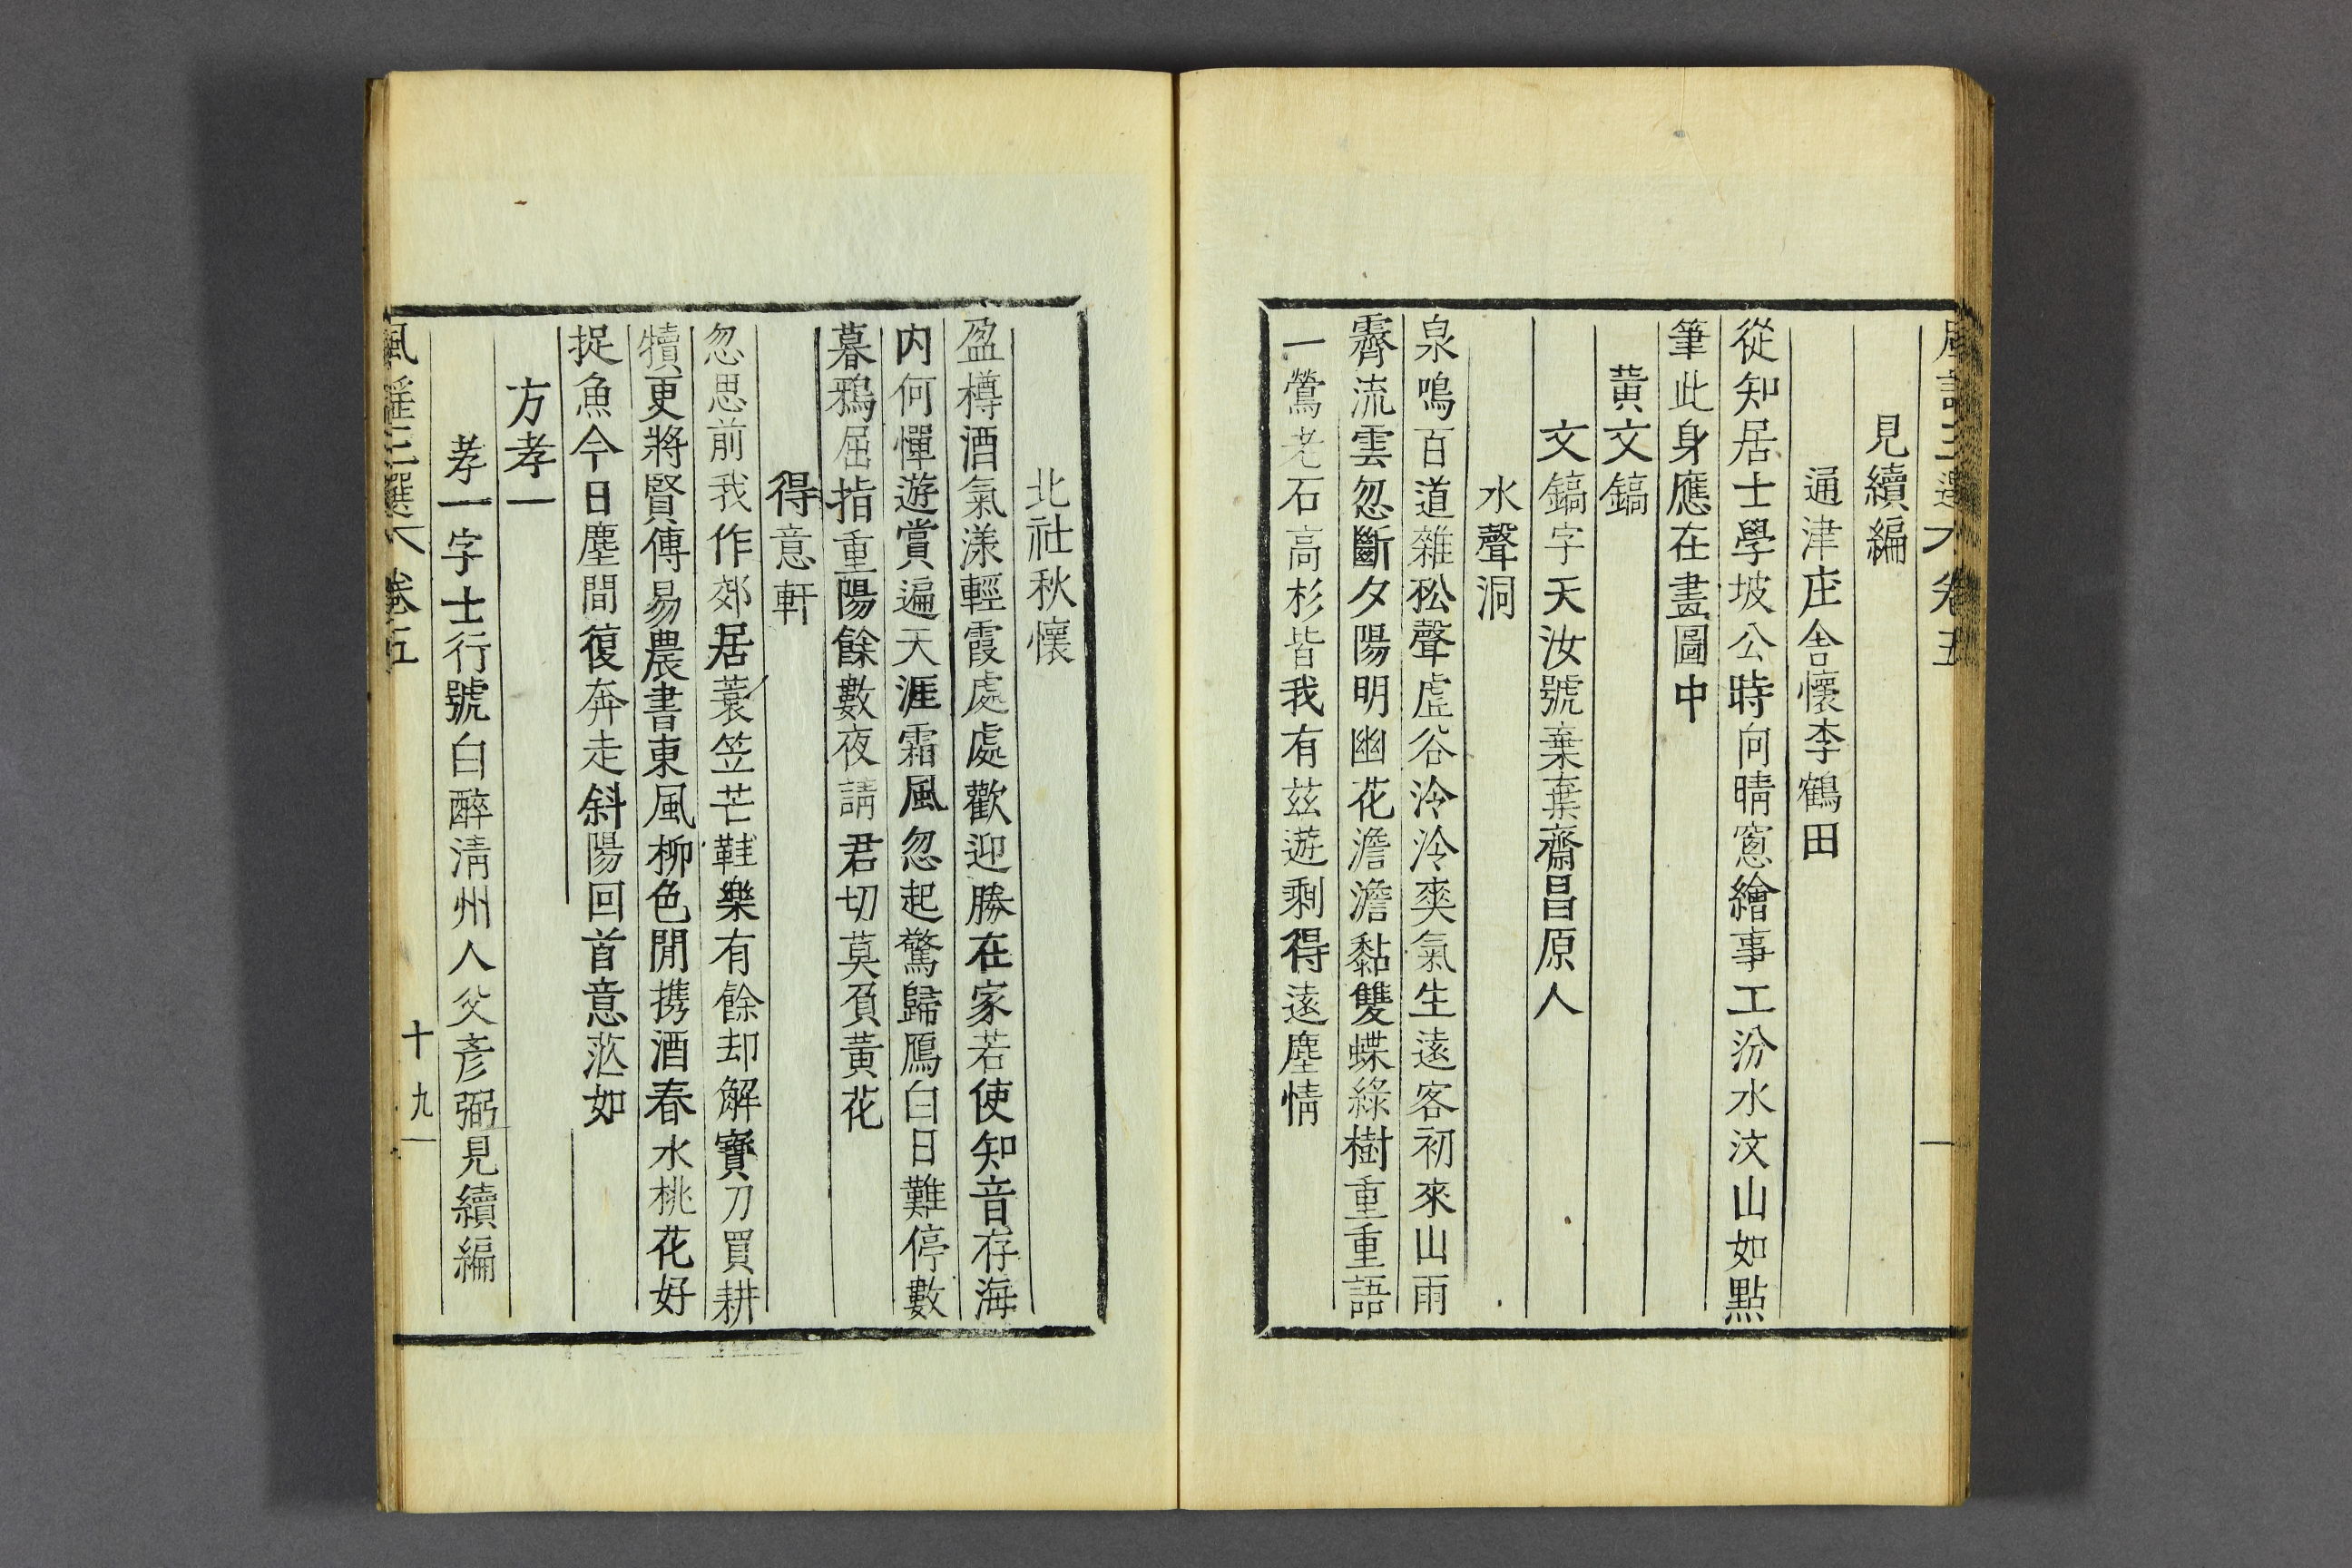 風謠三選 卷五
見續編
通津庄舍懷李鶴田
從知居士學坡公時向晴窓繪事工汾水汶山如點
筆此身應在畫圖中
黃文鎬
文鎬字天汝號棄棄齋昌原人
水聲洞
泉鳴百道雜松聲虛谷泠泠爽氣生遠客初來山雨
霽流雲忽斷夕陽明幽花澹澹黏雙蝶綠樹重重語
一鶯老石高杉皆我有玆遊剩得遠塵情
北社秋懷
盈樽酒氣漾輕霞處處歡迎勝在家若使知音存海
内何憚遊賞遍天涯霜風忽起驚歸鴈白日難停數
暮鴉屈指重陽餘數夜請君切莫負黃花
得意軒
忽思前我作郊居蓑笠芒鞋樂有餘却解寶刀買耕
犢更將賢傳易農書東風柳色閒携酒春水桃花好
捉魚今日塵間復奔走斜陽回首意茫如
方孝一
孝一字士行號白醉淸州人父彥弼見續編
風謠三選 卷五 十九